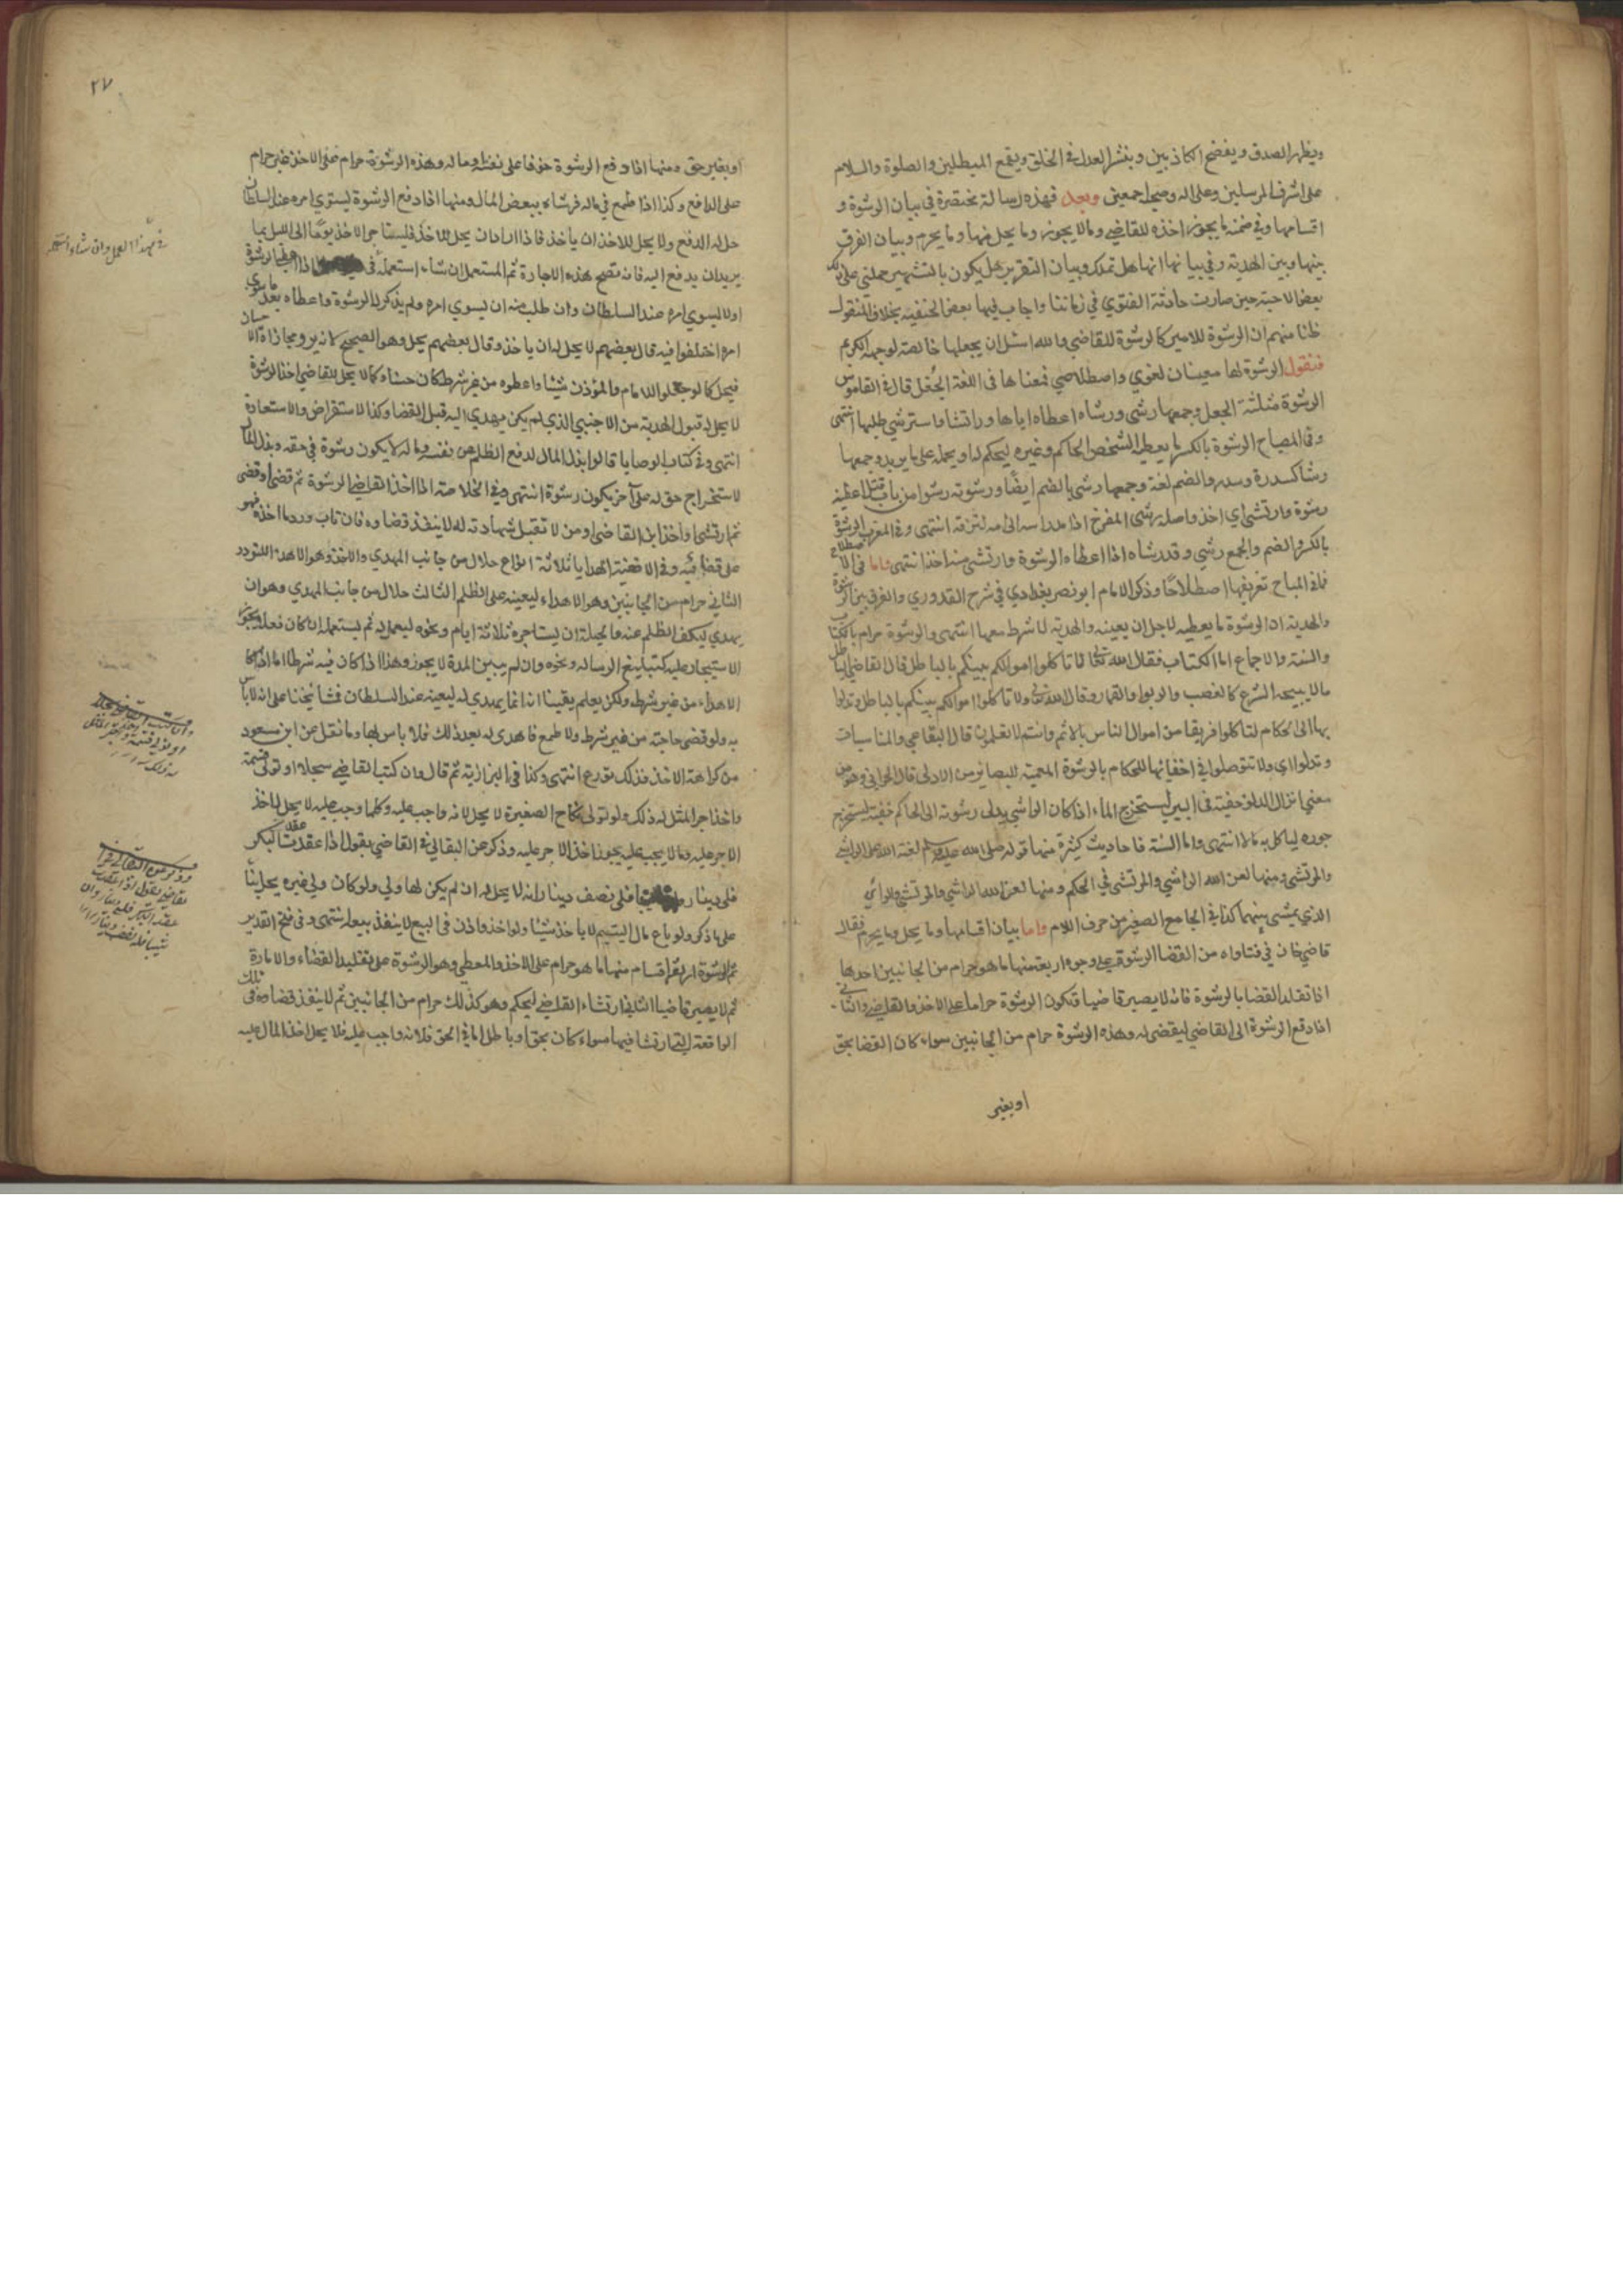 ويظهر الصدق ويفضح الكاذبين وينشر العدل في الخلق ويقمع المبطلين والصلوة والسلام
على اشرف المرسلين وعلى اله وصحبه اجمعين وبعد فهذه رسالة مختصرة في بيان الرشوة و
اقسامها وفي ضمنه ما يجوز اخذه للقاضي وما لا يجوز وما يحل منها وما يحرم وبيان الفرق
بينها وبين الهدية وفي بيانها انها هل تملك وبيان التقرير هل يكون بالتشهير حملني على ذلك
بعض الاحبة حين صارت حادثة الفتوي في زماننا واجاب فيها بعض الحنفية بخلاف المنقول
ظنا منهم ان الرشوة للامير كالرشوة للقاضي والله اسئل ان يجعلها خالصة لوجهه الكريم
فنقول الرشوة لها معينان لغوي واصطلاحي فمعناها في اللغة الجعل قال في القاموس
الرشوة مثلثة الجعل وجمعها رشى ورشاه اعطاه اياها وراتشا واسترشي طلبها انتهى
وفي المصباح الرشوة بالكسر ما يعطيه الشخص الحاكم وغيره ليحكم له او يحمله على ما يريد وجمعها
رشا كسدرة وسدر والضم لغة وجمعها رشى بالضم ايضا ورشوته رشوا من باب قتل اعطيته
رشوة وارتشى اي اخذ واصله رشى الفرخ اذا مد راسه الى امه لتزقه انتهى وفي المغرب الرشوة
بالكسر والضم والجمع رشي وقد رشاه اذا اعطاه الرشوة وارتشى منه اخذ انتهى واما في الاصطلاح
تعريفها اصطلاحا وذكر الامام ابو نصر بغدادي في شرح القدوري والفرق بين الرشوة
والهدية ان الرشوة ما يعطيه لاجل ان يعينه والهدية لا شرط معها انتهى والرشوة حرام بالكتاب
والسنة والاجماع اما الكتاب فقال الله تعالى لا تاكلوا اموالكم بينكم بالباطل قال القاضي الباطل
ما لا يبيحه الشرع كالغصب والربوا والقمار وقال الله تعالى ولا تاكلوا اموالكم بينكم بالباطل وتدلوا
بها الى الحكام لتاكلوا فريقا من اموال الناس بالاثم وانتم لا تعلمون قال البقاعي في المناسبات
وتدلوا اي ولا تتوصلوا في اخفائها للحكام بالرشوة المعمية للبصاير من الادلى قال الحراني وهو من
معني انزال الدلو خفية في البير ليستخرج الماء اذا كان الراشي يدلى رشوته الى الحاكم خفية ليستخرج
جوره لياكل به مالا انتهى واما السنة فاحاديث كثيرة منها قوله صلى الله عليه وسلم لعنة الله على الراشي
والمرتشي ومنها لعن الله الراشي والمرتشي في الحكم ومنها لعن الله الراشي والمرتشي والرائش
الذي يمشي بينهما كذا في الجامع الصغير من حرف اللام واما بيان اقسامها وما يحل وما يحرم فقال
قاضيخان في فتاواه من القضا الرشوة على وجوه اربعة منها ما هو حرام من الجانبين احدها
اذا تقلد القضا بالرشوة فانه لا يصير قاضيا وتكون الرشوة حراما على الاخذ والقاضي والثاني
اذا دفع الرشوة الى القاضي ليقضى له وهذه الرشوة حرام من الجانبين سواء كان القضا بحق
او بغير
٢٧
او بغير حق ومنها اذا دفع الرشوة خوفا على نفسه وماله وهذه الرشوة حرام على الاخذ غير حرام
على الدافع وكذا اذا طمع في ماله فرشاه ببعض المال ومنها اذا دفع الرشوة ليسوي امره عند السلطان
حل له الدفع ولا يحل للاخذ ان ياخذ فاذا اراد ان يحل للاخذ فليستاجر الاخذ يوما الى الليل بما
يريد ان يدفع اليه فانه تصح هذه الاجارة ثم المستعمل ان شاء استعمله في اذا اعطي الرشوة
اولا ليسوي امره عند السلطان وان طلب منه ان يسوي امره ولم يذكر له الرشوة واعطاه بعد ما سوي
امره اختلفوا فيه قال بعضهم لا يحل له ان ياخذ وقال بعضهم يحل وهو الصحيح لانه بر ومجازاة الاحسان
فيحل كما لو جعلوا للامام والموذن شيئا واعطوه من غير شرط كان حسنا وكما لا يحل للقاضي اخذ الرشوة
لا يحل له قبول الهدية من الاجنبي الذي لم يكن يهدي اليه قبل القضا وكذا الاستقراض والاستعارة
انتهى وفي كتاب الوصايا قالوا بذل المال لدفع الظلم عن نفسه وماله لا يكون رشوة في حقه وبذل المال
لاستخراج حق له على آخر يكون رشوة انتهى وفي الخلاصة اما اخذ القاضي الرشوة ثم قضى او قضى
ثم ارتشى او اخذ ابن القاضي او من لا تقبل شهادته له لا ينفذ قضاوه فان تاب ورد ما اخذ فهو
على قضائيه وفي الاقضية الهدايا ثلاثة انواع حلال من جانب المهدي والاخذ وهو الاهدا للتودد
الثاني حرام من الجانبين وهو الاهداء ليعينه على الظلم الثالث حلال من جانب المهدي وهو ان
يهدي ليكف الظلم عنه والحيلة ان يستاجره ثلاثة ايام ونحوه ليعمل له ثم يستعمله ان كان فعلا يجوز
الاستيجار عليه كتبليغ الرساله ونحوه وان لم يبين المدة لا يجوز وهذا اذا كان فيه شرط اما اذا كان
الاهداء من غير شرط ولكن يعلم يقينا انه انما يهدي له ليعينه عند السلطان فمشايخنا على انه لا باس
به ولو قضى حاجته من غير شرط ولا طمع فاهدى له بعد ذلك فلا باس بها وما نقل عن ابن مسعود
من كراهة الاخذ فذلك تورع انتهى وكذا في البزازية ثم قال وان كتب القاضي سجلا او تولى قسمة
واخذ اجر المثل له ذلك ولو تولى نكاح الصغيرة لا يحل لانه واجب عليه وكلما وجب عليه لا يحل اخذ
الاجر عليه وما لا يجب عليه يجوز اخذ الاجر عليه وذكر عن البقالي في القاضي يقول اذا عقدت عقد البكر
فلي دينار فلي نصف دينار انه لا يحل له ان لم يكن لها ولي ولو كان ولي غيره يحل بناء
على ما ذكر ولو باع مال اليتيم لا ياخذ شيئا ولو اخذ واذن في البيع لا ينفذ بيعه انتهى وفي فتح القدير
ثم الرشوة اربعة اقسام منها ما هو حرام على الاخذ والمعطي وهو الرشوة على تقليد القضاء والامارة
ثم لا يصير قاضيا الثاني ارتشاء القاضي ليحكم وهو كذلك حرام من الجانبين ثم لا ينفذ قضاوه في تلك
الواقعة التي ارتشا فيها سواء كان بحق او باطل اما في الحق فلانه واجب عليه فلا يحل اخذ المال عليه
في هذا العمل وان شاء استعمله